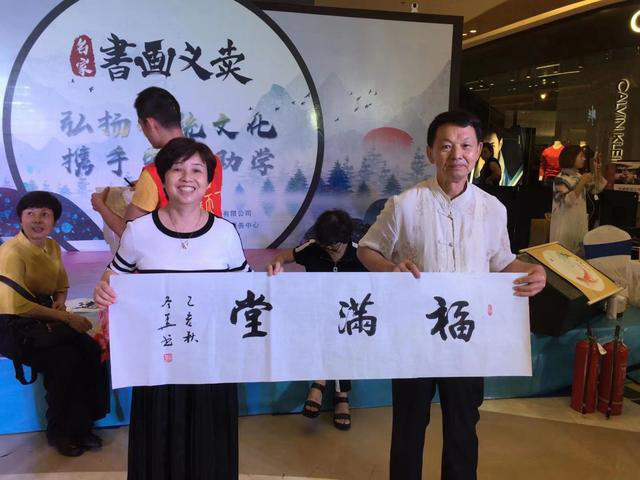 名家
書画义卖
弘扬 统文化
携手 助学
有限公司
务中心
福滿堂
亥秋
CALVIN KLEIN